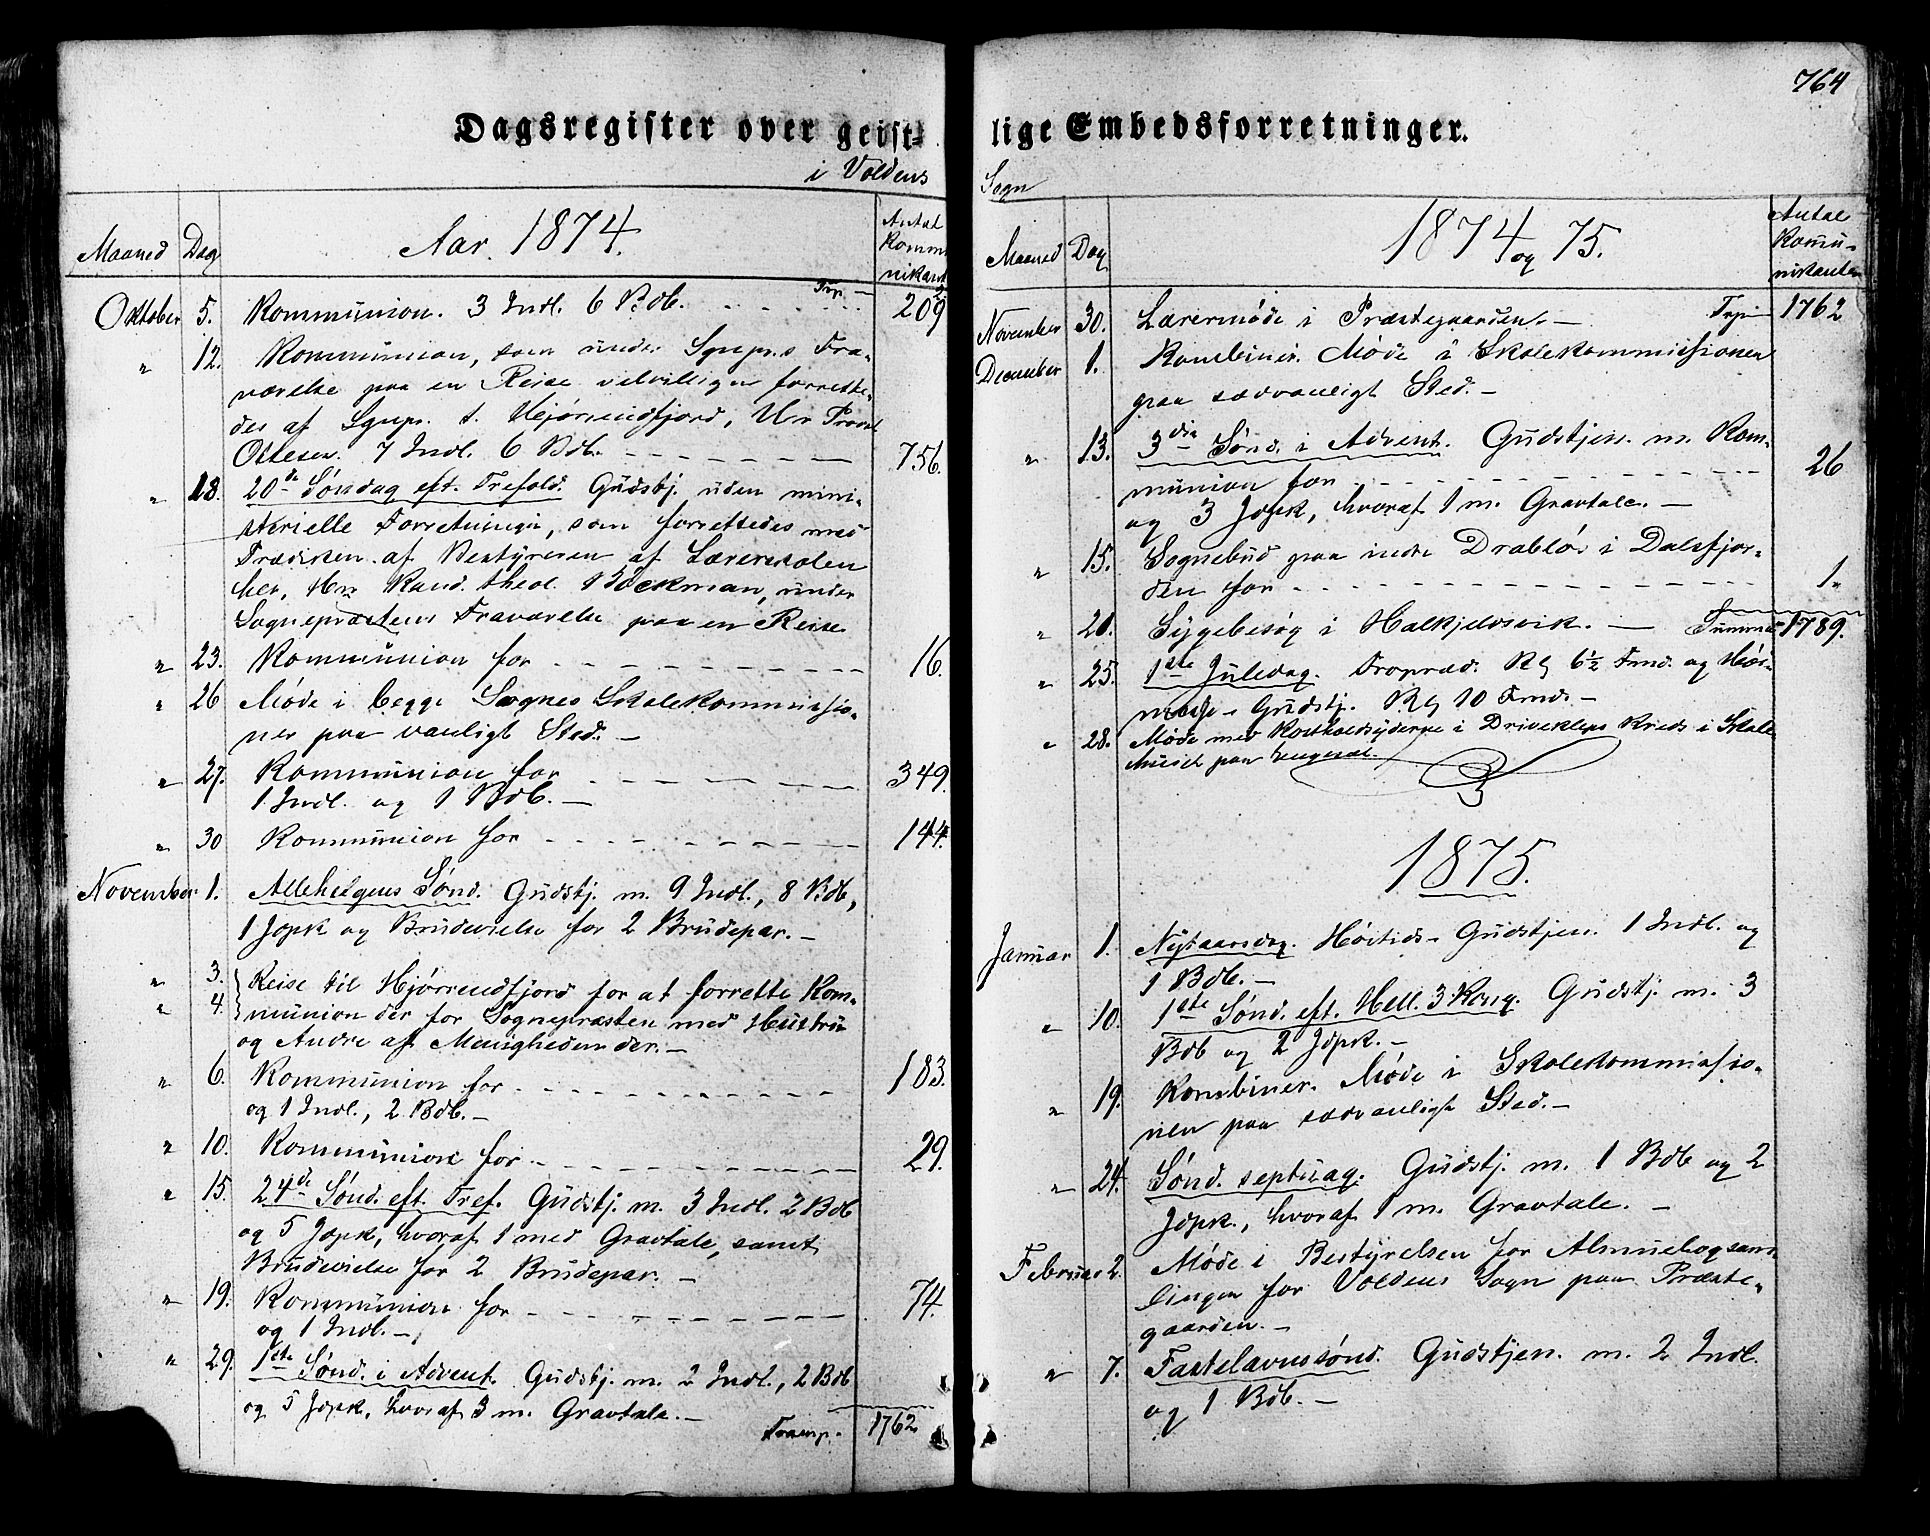 764
Dagsregister over geist-
lige Embedsforretninger.
i Voldens
Sogn
Maaned Dag Aar 1874. Antal
Kommu
nikant
Oktober 5. Kommunion. 3 Indl. 6 Bdb. Trp. — 209
" 12. Kommunion, som under Sgnpr.s Fra-
værelse paa en Reise velvilligen forrette-
des af Sgnpr. t. Hjørendfjord, Hr Provst
Ottesen. 7 Indl. 6 Bdb. 756.
" 18. 20de Søndag eft. Trefold. Gudstj. uden mini-
sterielle Forretninger, som forrettedes med
Prædiken af Bestyreren af Lærerskolen
her, Hr Kand. theol. Böckman, under
Sognepræstens Fraværelse paa en Reise
" 23. Kommunion for 16.
" 26 Møde i begge Sognes Skolekommissio-
ner paa vanligt Sted. —
" 27. Kommunion for 349.
1 Indl. og 1 Bdb. —
" 30 Kommunion for 144.
November 1. Allehelgens Sønd. Gudstj. m. 9 Indl., 8 Bdb,
1 Jopk og Brudevielse for 2 Brudepar. —
" 3. Reise til Hjørrendfjord for at forrette Kom-
" 4. munion der for Sognepræsten med Hustru
og Andre af Menigheden der. —
" 6. Kommunion for 183.
og 1 Indl., 2 Bdb. —
" 10. Kommunion for 29.
" 15. 24de Sønd. eft. Tref. Gudstj. m. 3 Indl. 2 Bdb
og 5 Jopk, hvoraf 1 med Gravtale, samt
Brudevielse for 2 Brudepar. —
" 19. Kommunion for 74.
og 1 Indl. —
" 29. 1ste Sønd. i Advent. Gudstj. m. 2 Indl., 2 Bdb
og 5 Jopk, hvoraf 3 m. Gravtale. —
Transp. 1762
Maaned Dag 1874 og 75. Antal
Kommu-
nikanter
November 30. Lærermøde i Præstegaarden. — Trp. 1762
December 1. Kombiner. Møde i Skolekommissionen
paa sædvanligt Sted. —
" 13. 3die Sønd. i Advent. Gudstjen. m. Kom-
munion for 26
og 3 Jopk, hvoraf 1 m. Gravtale. —
" 15. Sognebud paa indre Drabløs i Dalsfjor-
den for 1.
" 20. Sygebesøg i Halkjeldsvik. — Summa 1789.
" 25. 1ste Juledag. Fropræd. Kl 6½ Fmd. og Høi-
messe-Gudstj. Kl 10 Fmd. —
" 28. Møde med Rosholdsyderne i Drivekleps Kreds i Skole
huset paa
1875.
Januar 1. Nytaarsdag. Høitids-Gudstjen. 1 Indl. og
1 Bdb. —
" 10. 1ste Sønd. eft. Hell. 3 Kong. Gudstj. m. 3
Bdb og 2 Jopk. —
" 19. Kombiner. Møde i Skolekommissio-
nen paa sædvanligt Sted. —
" 24. Sønd. septuag. Gudstj. m. 1 Bdb og 2
Jopk., hvoraf 1 m. Gravtale. —
Februar 2. Møde i Bestyrelsen for Almuebogsam-
lingen for Voldens Sogn paa Præste-
gaarden. —
" 7. Fastelavnssønd. Gudstjen. m. 2 Indl.
og 1 Bdb. —